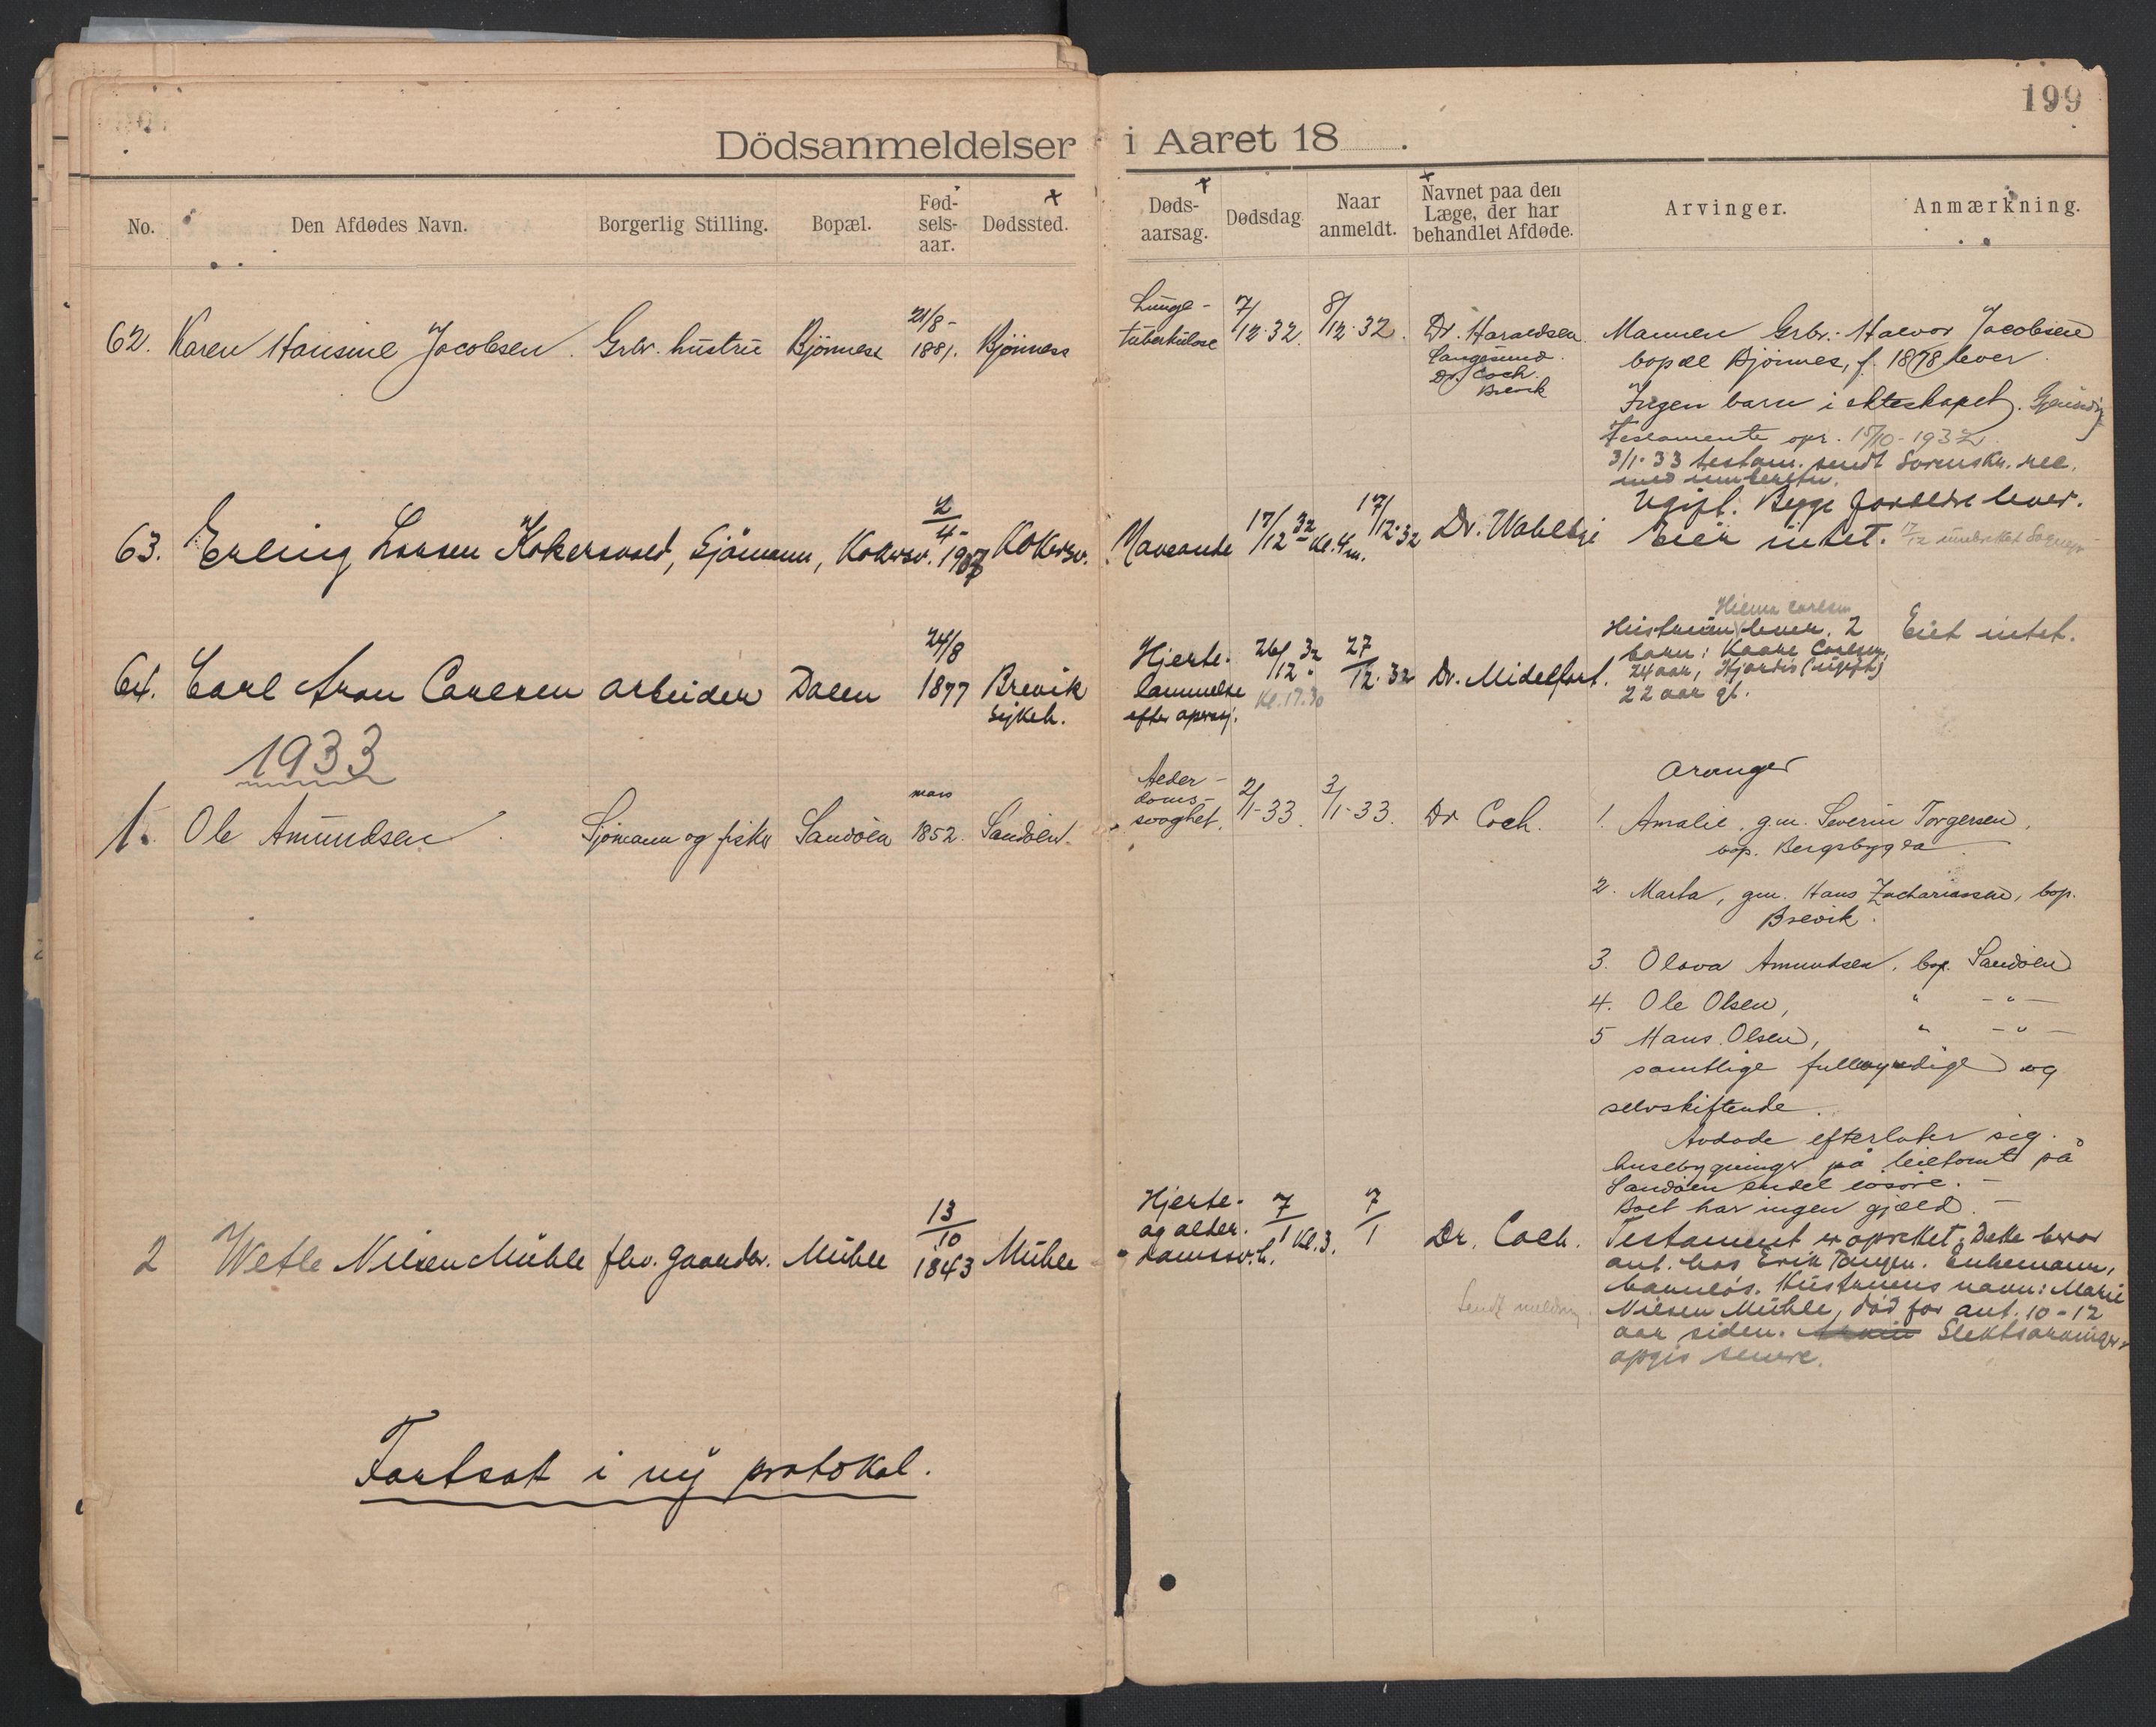 199
Dödsanmeldelser i Aaret 18 .
No. Den Afdødes Navn. Borgerlig Stilling. Bopæl. Fød-sels-aar. Dødssted. Døds-aarsag. Dødsdag Naar anmeldt. Navnet paa den Læge, der har behandlet Afdøde. Arvinger. Anmærkning.
62. Karen Hansine Jacobsen. Grbr. hustru Bjönness 21/8-1881. Bjönness
Lunge-
tuberkulose 7/12-32. 8/12-32. Dr. Haraldsen
Langesund.
Dr. Coch.
Brevik
Mannen Grbr. Halvor Jacobsen
bopæl Bjönnes, f. 1878 lever.
Ingen barn i ekteskapet. Gjensidig
Testamente opr. 15/10-1932
3/1-33 testam. sendt Sorenskr.
63. Erling Larsen Kokersvold, Sjömann, Kokersv. 2/4-1907 Kokersv.
17/12 32 Kl. 4 m. 17/12-32 Dr. Wahlskje
Ugift. Begge foreldre lever.
Eier intet. 17/12
64. Carl Aron Carlsen arbeider Dalen 24/8 1877 Brevik
sykeh.
Hjerte-
lammelse
efter operasj. 26/12 32 Kl. 17.30 27/12-32 Dr. Midelfart.
Hilma Carlsen
Hustruen lever. 2
barn: Kaare Carlsen,
24 aar, Hjørdis (ugift)
22 aar gl.
Eiet intet.
1933
1. Ole Amundsen. Sjömann og fisker Sandöen mars 1852. Sandöen.
Alder-
doms-
svaghet. 2/1-33. 3/1-33. Dr Coch.
Arvinger
1. Amalie, gm. Severin Torgersen,
bop. Bergsbygda
2. Marta, gm. Hans Zachariassen, bop.
Brevik.
3. Olava Amundsen, bop. Sandöen
4. Ole Olsen, " - " -
5 Hans Olsen, " - " -
samtlige fullmyndige og
selvskiftende.
Avdöde efterlater sig
husebygninger på leietomt på
Sandöen endel lösöre. -
Boet har ingen gjæld. -
2 Wetle Nilsen Mühle fhv. gaardbr. Mühle 13/10 1843 Mühle
Hjerte-
og alder-
domssv.h. 7/1 Kl. 3. 7/1 Dr. Coch.
Sendt melding.
Testament er oprettet. Dette beror
ant. hos Erik Tangen. Enkemann,
barnlös. Hustruens navn: Marie
Nilsen Mühle, död for ant. 10-12
aar siden. Slektsarvinger
opgis senere.
Fortsat i ny protokol.